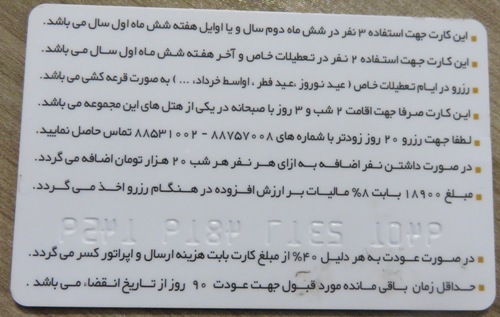 این کارت جهت استفاده ۳ نفر در شش ماه دوم سال و یا اوایل هفته شش ماه اول سال می باشد.
این کارت جهت استفاده ۲ نفر در تعطیلات خاص و آخر هفته شش ماه اول سال می باشد.
رزرو در ایام تعطیلات خاص ( عید نوروز ,عید فطر , اواسط خرداد, ... ) به صورت قرعه کشی می باشد.
این کارت صرفا جهت اقامت ۲ شب و ۳ روز با صبحانه در یکی از هتل های این مجموعه می باشد.
لطفا جهت رزرو ۲۰ روز زودتر با شماره های ۸۸۷۵۷۰۰۸ - ۸۸۵۳۱۰۰۲ تماس حاصل نمایید.
در صورت داشتن نفر اضافه به ازای هر نفر هر شب ۲۰ هزار تومان اضافه می گردد.
مبلغ ۱۸۹۰۰ بابت ۸% مالیات بر ارزش افزوده در هنگام رزرو اخذ می گردد.
در صورت عودت به هر دلیل ۴۰% از مبلغ کارت بابت هزینه ارسال و اپراتور کسر می گردد.
حداقل زمان باقی مانده مورد قبول جهت عودت ۹۰ روز از تاریخ انقضاء می باشد .